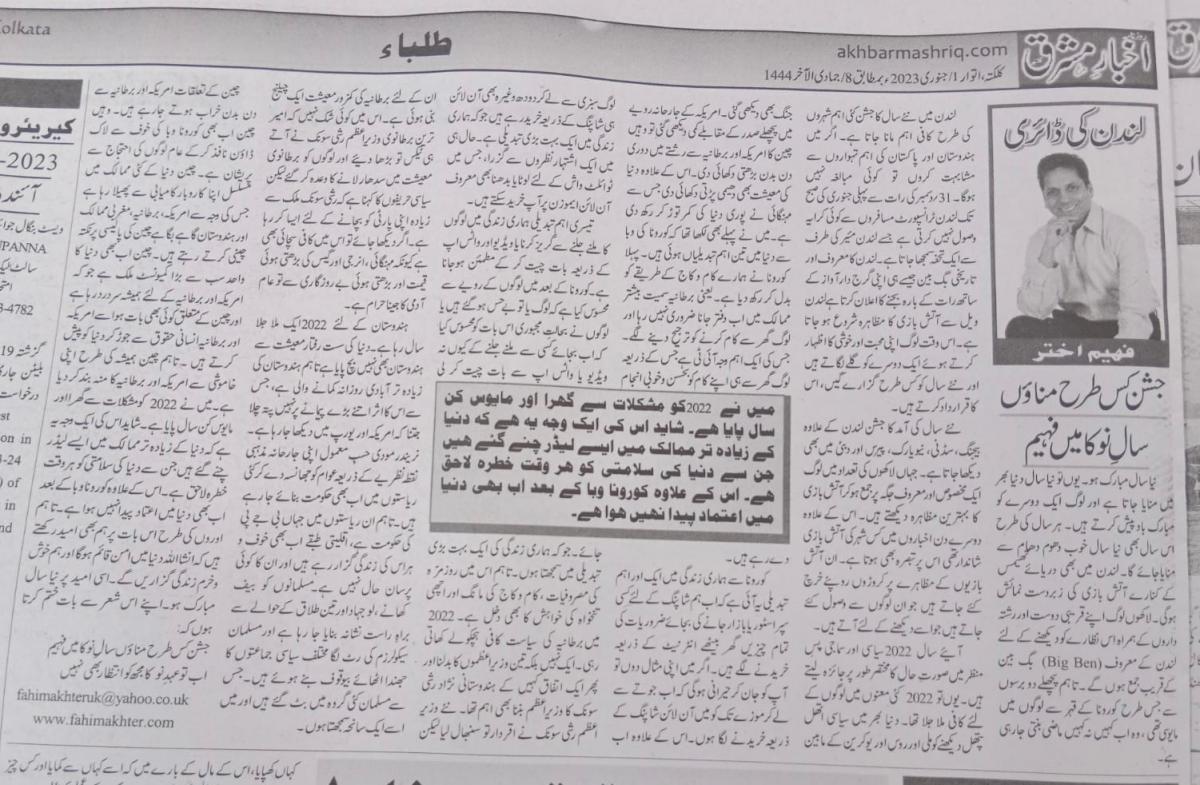 Kolkata
طلباء
akhbarmashriq.com
کلکتہ، اتوار 1/جنوری 2023ء بمطابق 8/جمادی الآخر 1444
اخبارِ مشرق
لندن کی ڈائری
فہیم اختر
جشن کس طرح مناؤں
سالِ نو کا میں فہیم
نیا سال مبارک ہو۔ یوں تو نیا سال دنیا بھر
میں منایا جاتا ہے اور لوگ ایک دوسرے کو
مبارک باد پیش کرتے ہیں۔ ہر سال کی طرح
اس سال بھی نیا سال خوب دھوم دھام سے
منایا جائے گا۔ لندن میں بھی دریائے ٹیمس
کے کنارے آتش بازی کی زبردست نمائش
ہوگی۔ لاکھوں لوگ اپنے قریبی دوست اور رشتہ
داروں کے ہمراہ اس نظارے کو دیکھنے کے لئے
لندن کے معروف (Big Ben) بگ بین
کے قریب جمع ہوں گے۔ تاہم پچھلے دو برسوں
سے جس طرح کورونا کے قہر سے لوگوں میں
مایوسی تھی، وہ اب کہیں نہ کہیں ماضی بنتی جارہی
ہے۔
لندن میں نئے سال کا جشن کئی اہم شہروں
کی طرح کافی اہم مانا جاتا ہے۔ اگر میں
ہندوستان اور پاکستان کی اہم تہواروں سے
مشابہت کروں تو کوئی مبالغہ نہیں
ہوگا۔ 31/دسمبر کی رات سے پہلی جنوری کی صبح
تک لندن ٹرانسپورٹ مسافروں سے کوئی کرایہ
وصول نہیں کرتی ہے جسے لندن میئر کی طرف
سے ایک تحفہ سمجھا جاتا ہے۔ لندن کا معروف اور
تاریخی بگ بین جیسے ہی اپنی گرج دار آواز کے
ساتھ رات کے بارہ بجنے کا اعلان کرتا ہے لندن
ویل سے آتش بازی کا مظاہرہ شروع ہوجاتا
ہے۔ اس وقت لوگ اپنی محبت اور خوشی کا اظہار
کرتے ہوئے ایک دوسرے کو گلے لگاتے ہیں
اور نئے سال کو کس طرح گزاریں گے، اس
کا قرارداد کرتے ہیں۔
نئے سال کی آمد کا جشن لندن کے علاوہ
بیجنگ، سڈنی، نیویارک، پیرس اور دبئی میں بھی
دیکھا جاتا ہے۔ جہاں لاکھوں کی تعداد میں لوگ
ایک مخصوص اور معروف جگہ پر جمع ہوکر آتش بازی
کا بہترین مظاہرہ دیکھتے ہیں۔ اس کے علاوہ
دوسرے دن اخباروں میں کس شہر کی آتش بازی
شاندار تھی اس پر تبصرہ بھی ہوتا ہے۔ ان آتش
بازیوں کے مظاہرے پر کروڑوں روپے خرچ
کئے جاتے ہیں جو ان لوگوں سے وصول کئے
جاتے ہیں جو اسے دیکھنے کے لئے آتے ہیں۔
آیئے سال 2022 سیاسی اور سماجی پس
منظر میں صورت حال کا مختصر طور پر جائزہ لیتے
ہیں۔ یوں تو 2022 کئی معنوں میں لوگوں کے
لئے کافی ملا جلا تھا۔ دنیا بھر میں سیاسی اتھل
پتھل دیکھنے کو ملی اور روس اور یوکرین کے مابین
جنگ بھی دیکھی گئی۔ امریکہ کے جارحانہ رویے
میں پچھلے صدر کے مقابلے کمی دیکھی گئی تو وہیں
چین کا امریکہ اور برطانیہ سے رشتے میں دوری
دن بدن بڑھتی دکھائی دی۔ اس کے علاوہ دنیا
کی معیشت بھی دھیمی پڑتی دکھائی دی جس سے
مہنگائی نے پوری دنیا کی کمر توڑ کر رکھ دی
ہے۔ میں نے پہلے بھی لکھا تھا کہ کورونا کی وبا
سے دنیا میں تین اہم تبدیلیاں ہوئی ہیں۔ پہلا
کورونا نے ہمارے کام و کاج کے طریقے کو
بدل کر رکھ دیا ہے۔ یعنی برطانیہ سمیت بیشتر
ممالک میں اب دفتر جانا ضروری نہیں رہا اور
لوگ گھر سے کام کرنے کو ترجیح دینے لگے۔
جس کی ایک اہم وجہ آئی ٹی ہے جس کے ذریعہ
لوگ گھر سے ہی اپنے کام کو بحسن و خوبی انجام
دے رہے ہیں۔
کورونا سے ہماری زندگی میں ایک اور اہم
تبدیلی یہ آئی ہے کہ اب ہم شاپنگ کے لئے کسی
سپر اسٹور یا بازار جانے کی بجائے ضروریات کی
تمام چیزیں گھر بیٹھے انٹرنیٹ کے ذریعہ
خریدنے لگے ہیں۔ اگر میں اپنی مثال دوں تو
آپ کو جان کر حیرانی ہوگی کہ اب جوتے سے
لے کر موزے تک کو میں آن لائن شاپنگ کے
ذریعہ خریدنے لگا ہوں۔ اس کے علاوہ اب
لوگ سبزی سے لے کر دودھ وغیرہ بھی آن لائن
ہی شاپنگ کے ذریعہ خرید رہے ہیں جو کہ ہماری
زندگی میں ایک بہت بڑی تبدیلی ہے۔ حال ہی
میں ایک اشتہار نظروں سے گزرا، جس میں
ٹوائلٹ واش کے لئے لوٹا یا بدھنا بھی معروف
آن لائن ایموزن پر آپ خرید سکتے ہیں۔
تیسری اہم تبدیلی ہماری زندگی میں لوگوں
کا ملنے جلنے سے گریز کرنا یا ویڈیو یا واٹس اپ
کے ذریعہ بات چیت کر کے مطمئن ہوجانا
ہے۔ کورونا کے بعد میں لوگوں کے رویے سے
محسوس کیا ہے کہ لوگ یا تو بے حس ہوگئے ہیں یا
لوگوں نے بحالت مجبوری اس بات کو محسوس کیا
کہ اب بجائے کسی سے ملنے جلنے کے کیوں نہ
ویڈیو یا واٹس اپ سے بات چیت کر لی
میں نے 2022کو مشکلات سے گھرا اور مایوس کن
سال پایا ہے۔ شاید اس کی ایک وجہ یہ ہے کہ دنیا
کے زیادہ تر ممالک میں ایسے لیڈر چنے گئے ہیں
جن سے دنیا کی سلامتی کو ہر وقت خطرہ لاحق
ہے۔ اس کے علاوہ کورونا وبا کے بعد اب بھی دنیا
میں اعتماد پیدا نہیں ہوا ہے۔
جائے۔ جو کہ ہماری زندگی کی ایک بہت بڑی
تبدیلی میں سمجھتا ہوں۔ تاہم اس میں روز مرہ
کی مصروفیات، کام و کاج کی مانگ اور اچھی
تنخواہ کی خواہش کا بھی دخل ہے۔ 2022
میں برطانیہ کی سیاست کافی ہچکولے کھاتی
رہی۔ ایک نہیں بلکہ تین وزیر اعظموں کا بدلنا اور
پھر ایک اتفاق کہیں کے ہندوستانی نژاد رشی
سونک کا وزیر اعظم بننا بھی اہم تھا۔ نئے وزیر
اعظم رشی سونک نے اقرار دار تو سنبھال لیا لیکن
ان کے لئے برطانیہ کی کمزور معیشت ایک چیلنج
بنی ہوئی ہے۔ اس میں کوئی شک نہیں کہ امیر
ترین برطانوی وزیر اعظم رشی سونک نے آتے
ہی ٹیکس تو بڑھا دیئے اور لوگوں کو برطانوی
معیشت میں سدھار لانے کا وعدہ کر گئے لیکن
سیاسی حریفوں کا کہنا ہے کہ رشی سونک ملک سے
زیادہ اپنی پارٹی کو بچانے کے لئے ایسا کر رہا
ہے۔ اگر دیکھا جائے تو اس میں کافی سچائی بھی
ہے کیونکہ مہنگائی، انرجی اور گیس کی بڑھتی ہوئی
قیمت اور بڑھتی ہوئی بے روزگاری سے تو عام
آدمی کا جینا حرام ہے۔
ہندوستان کے لئے 2022 ایک ملا جلا
سال رہا ہے۔ دنیا کی سست رفتار معیشت سے
ہندوستان بھی نہیں بچ پایا ہے تاہم ہندوستان کی
زیادہ تر آبادی روزانہ کمانے والی ہے، جس
سے اس کا اثر اتنے بڑے پیمانے پر نہیں پتہ چلا
جتنا کہ امریکہ اور یورپ میں دیکھا جا رہا ہے۔
نریندر مودی حسب معمول اپنی جارحانہ مذہبی
نقطۂ نظریے کے ذریعہ عوام کو جھانسہ دے کر کئی
ریاستوں میں اب بھی حکومت بنائے جا رہے
ہیں۔ تاہم ان ریاستوں میں جہاں بی جے پی
کی حکومت ہے، اقلیتی طبقے اب بھی خوف و
ہراس کی زندگی گزار رہے ہیں اور ان کا کوئی
پرسان حال نہیں ہے۔ مسلمانوں کو بیف
کھانے، لو جہاد اور تین طلاق کے حوالے سے
براہ راست نشانہ بنایا جا رہا ہے اور مسلمان
سیکولرزم کی رٹ لگا مختلف سیاسی جماعتوں کا
جھنڈا اٹھائے بیوقوف بنے ہوئے ہیں۔ جس
سے مسلمان کئی گروہ میں بٹ گئے ہیں اور میں
اسے ایک سانحہ سمجھتا ہوں۔
چین کے تعلقات امریکہ اور برطانیہ سے
دن بدن خراب ہوتے جا رہے ہیں۔ وہیں
چین اب بھی کورونا وبا کی خوف سے لاک
ڈاؤن نافذ کر کے عام لوگوں کی احتجاج سے
پریشان ہے۔ چین دنیا کے کئی ممالک میں
مسلسل اپنا کاروبار کامیابی سے پھیلا رہا ہے
جس کی وجہ سے امریکہ، برطانیہ، مغربی ممالک
اور ہندوستان گاہے بگاہے چین کی پالیسی پر نکتہ
چینی کرتے رہتے ہیں۔ چین اب بھی دنیا کا
واحد سب سے بڑا کمیونسٹ ملک ہے جو کہ
امریکہ اور برطانیہ کے لئے ہمیشہ سر درد رہا ہے
اور چین کے متعلق کوئی بھی بات ہوا سے امریکہ
اور برطانیہ انسانی حقوق سے جوڑ کر دنیا کو پیش
کرتے ہیں۔ تاہم چین ہمیشہ کی طرح اپنی
خاموشی سے امریکہ اور برطانیہ کا منہ بند کر دیا
ہے۔ میں نے 2022 کو مشکلات سے گھرا اور
مایوس کن سال پایا ہے۔ شاید اس کی ایک وجہ یہ
ہے کہ دنیا کے زیادہ تر ممالک میں ایسے لیڈر
چنے گئے ہیں جن سے دنیا کی سلامتی کو ہر وقت
خطرہ لاحق ہے۔ اس کے علاوہ کورونا وبا کے بعد
اب بھی دنیا میں اعتماد پیدا نہیں ہوا ہے۔ تاہم
اوروں کی طرح اس بات پر ہم بھی امید رکھتے
ہیں کہ انشااللہ دنیا میں امن قائم ہوگا اور ہم خوش
و خرم زندگی گزاریں گے۔ اسی امید پر نیا سال
مبارک ہو۔ اپنے اس شعر سے بات ختم کرتا
ہوں کہ:
جشن کس طرح مناؤں سال نو کا میں فہیم
اب تو عہد نو کا مجھ کو انتظار بھی نہیں
fahimakhteruk@yahoo.co.uk
www.fahimakhter.com
کیریئر و
-2023
ویسٹ بنگال جوائنٹ
UPANNA
3-4782
گزشتہ 19
درخواست
on in
3-24
) of
in
nd
کہاں کھپایا، اس کے مال کے بارے میں کہ اسے کہاں سے کمایا اور کس چیز